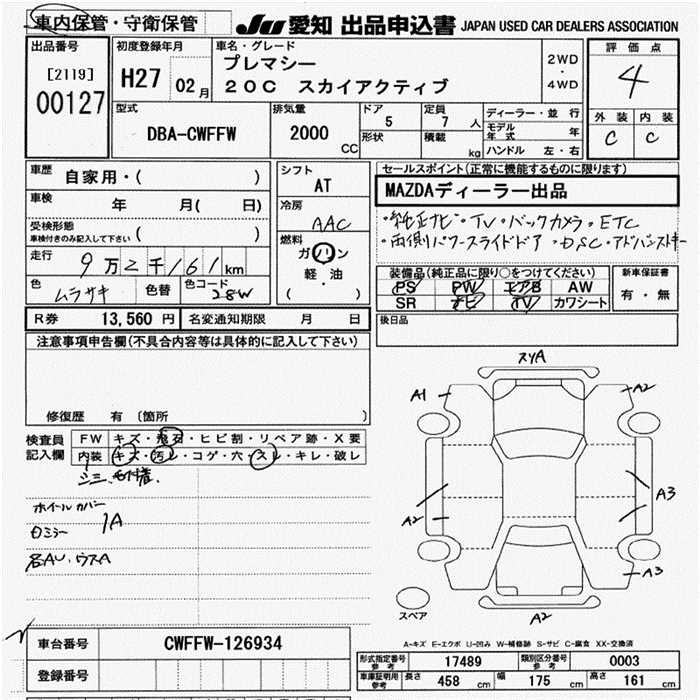 車内保管・守衛保管
JU 愛知 出品申込書 JAPAN USED CAR DEALERS ASSOCIATION
出品番号
[2119]
00127
初度登録年月
H27 02月
車名・グレード
プレマシー
20C スカイアクティブ
2WD
・
4WD
評価点
4
外装 内装
C C
型式
DBA-CWFFW
排気量
2000 CC
ドア
5
形状
定員
7人
積載
kg
ディーラー・並行
モデル年式 年
ハンドル 左・右
車歴 自家用・( )
車検 年 月( 日)
受検形態
車検付きのみ記入して下さい ( )
走行 9万2千161km
色 ムラサキ 色替 色コード 28W
シフト
AT
冷房
AAC
燃料
ガソリン
軽・油
( )
セールスポイント(正常に機能するものに限ります)
MAZDAディーラー出品
・純正ナビ・TV・バックカメラ・ETC
・両側パワースライドドア・DSC・アドバンストキー
装備品(純正品に限り○をつけてください)
PS PW エアB AW
SR ナビ TV カワシート
新車保証書
有・無
後日品
R券 13,560円 名変通知期限 月 日
注意事項申告欄(不具合内容等は具体的に記入して下さい)
修復歴 有 〔箇所 〕
検査員記入欄
FW キズ・飛石・ヒビ割・リペア跡・X要
内装 キズ・汚レ・コゲ・穴・スレ・キレ・破レ
シミ
ホイールカバー
ロミラー 1A
スリA
A1
A2
A2
A3
A3
A2
スペア
A-キズ E-エクボ U-凹み W-補修跡 S-サビ C-腐食 XX-交換済
車台番号 CWFFW-126934
登録番号
形式指定番号参考 17489 類別区分番号参考 0003
車庫証明用参考 長さ 458 cm 幅 175 cm 高さ 161 cm